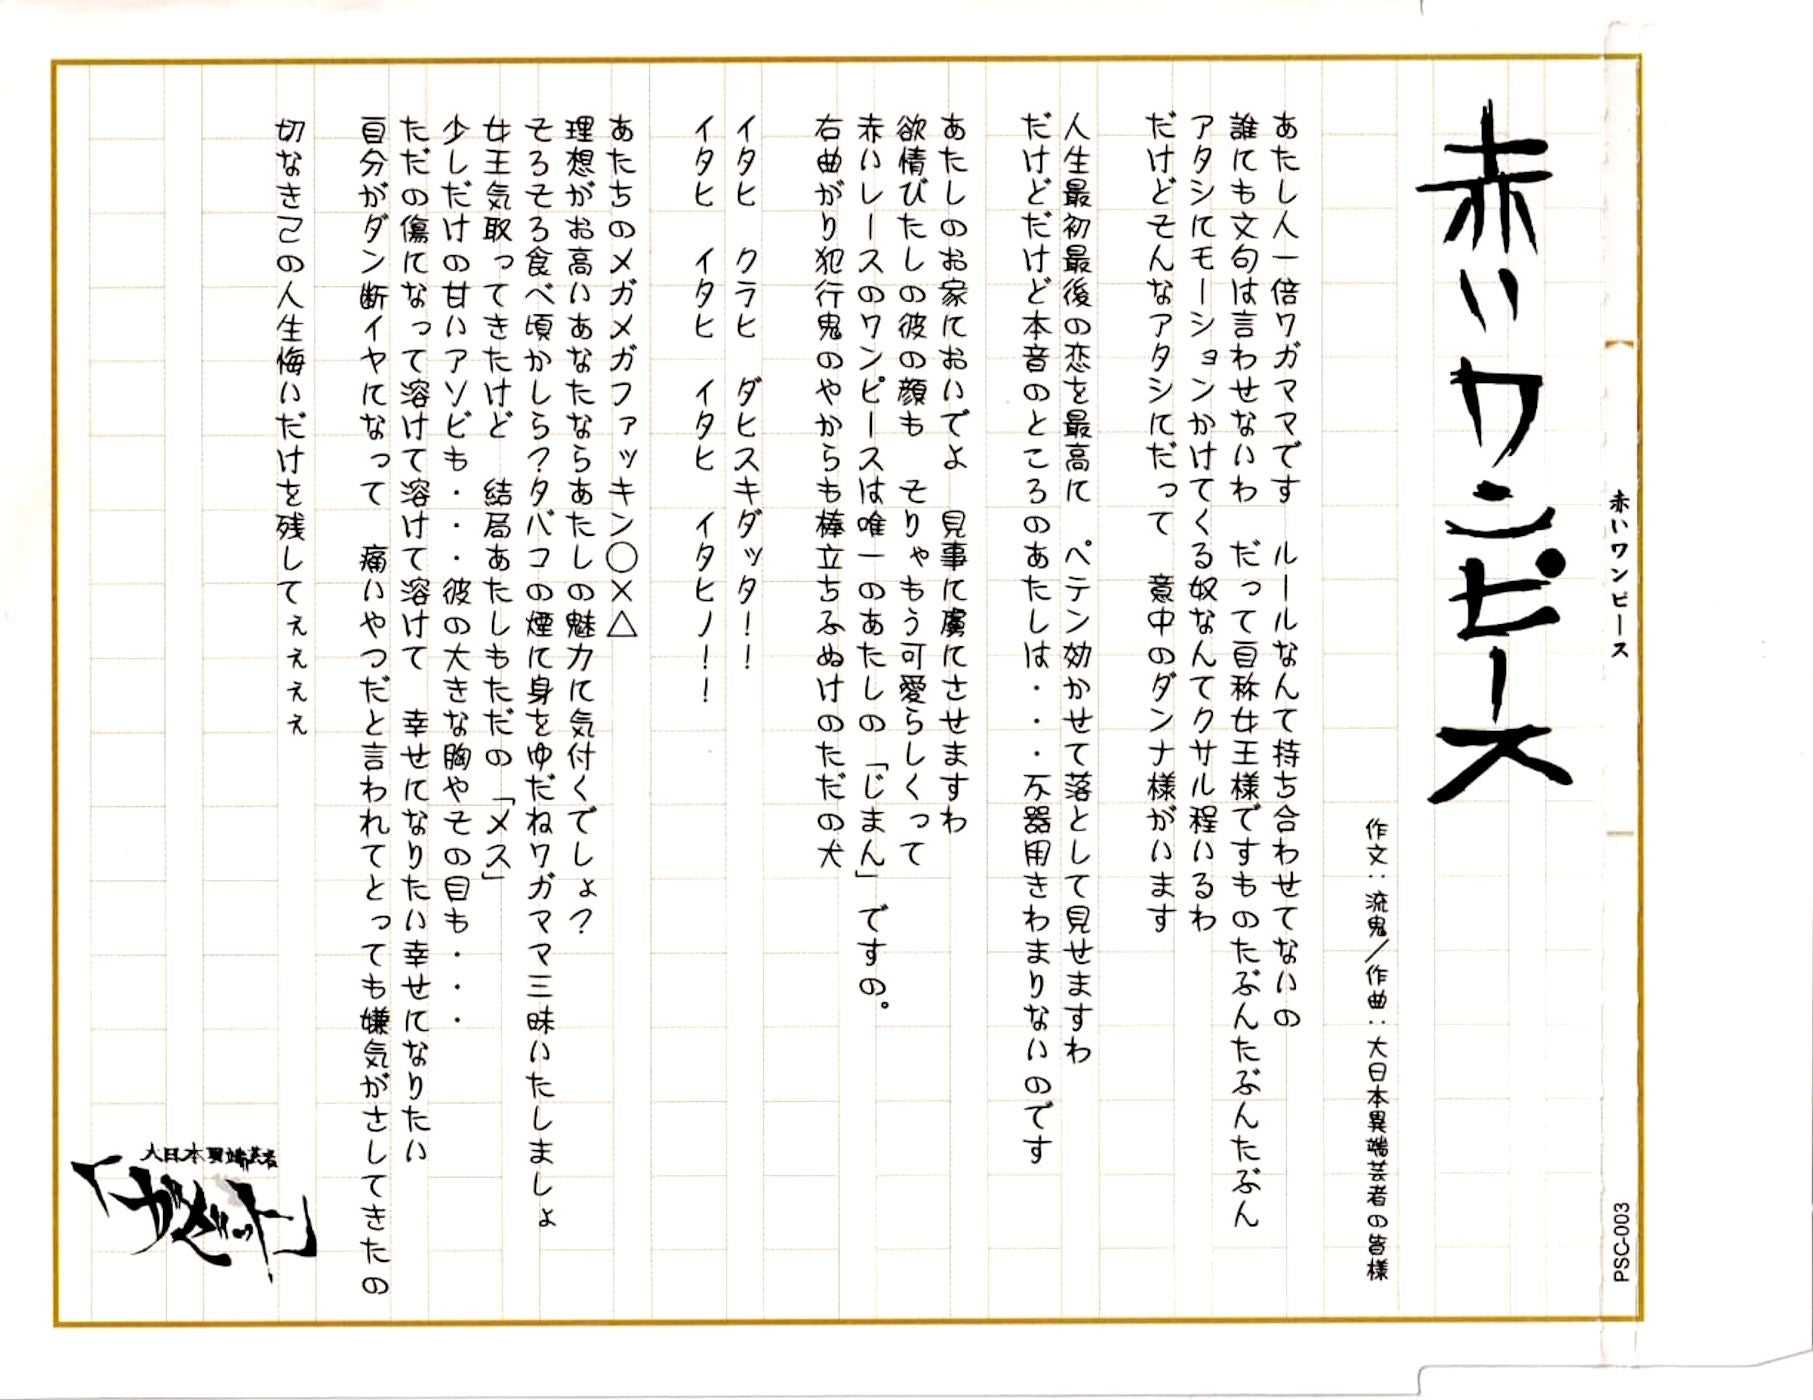 赤いワンピース
PSC-003
赤いワンピース
作文:流鬼/作曲:大日本異端芸者の皆様
あたし人一倍ワガママです　ルールなんて持ち合わせてないの
誰にも文句は言わせないわ　だって自称女王様ですものたぶんたぶんたぶん
アタシにモーションかけてくる奴なんてクサル程いるわ
だけどそんなアタシにだって　意中のダンナ様がいます
人生最初最後の恋を最高に　ペテン効かせて落として見せますわ
だけどだけど本音のところのあたしは・・・不器用きわまりないのです
あたしのお家においでよ　見事に虜にさせますわ
欲情びたしの彼の顔も　そりゃもう可愛らしくって
赤いレースのワンピースは唯一のあたしの「じまん」ですの。
右曲がり犯行鬼のやからも棒立ちふぬけのただの犬
イタヒ　クラヒ　ダヒスキダッタ!!
イタヒ　イタヒ　イタヒ　イタヒノ!!
あたちのメガメガファッキン○×△
理想がお高いあなたならあたしの魅力に気付くでしょ?
そろそろ食べ頃かしら?タバコの煙に身をゆだねワガママ三昧いたしましょ
女王気取ってきたけど　結局あたしもただの「メス」
少しだけの甘いアソビも・・・彼の大きな胸やその目も・・・
ただの傷になって溶けて溶けて溶けて　幸せになりたい幸せになりたい
自分がダン断イヤになって　痛いやつだと言われてとっても嫌気がさしてきたの
切なき己の人生悔いだけを残してぇぇぇぇ
大日本異端芸者
「ガゼット」